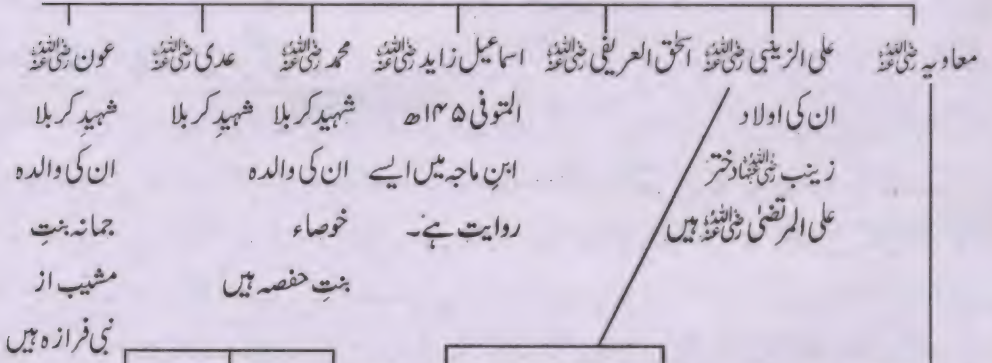 معاویہ رضی اللہ عنہ
علی الزینبی رضی اللہ عنہ
ان کی اولاد
زینب رضی اللہ عنہا دختر
علی المرتضیٰ رضی اللہ عنہ ہیں
اسحٰق العریفی رضی اللہ عنہ
اسماعیل زاہد رضی اللہ عنہ
المتوفی ۱۴۵ھ
ابنِ ماجہ میں ایسے
روایت ہے۔
محمد رضی اللہ عنہ
شہیدِ کربلا
ان کی والدہ
خوصاء
بنتِ حفصہ ہیں
عدی رضی اللہ عنہ
شہیدِ کربلا
عون رضی اللہ عنہ
شہیدِ کربلا
ان کی والدہ
جمانہ بنتِ
مشیب از
نبی فرازہ ہیں